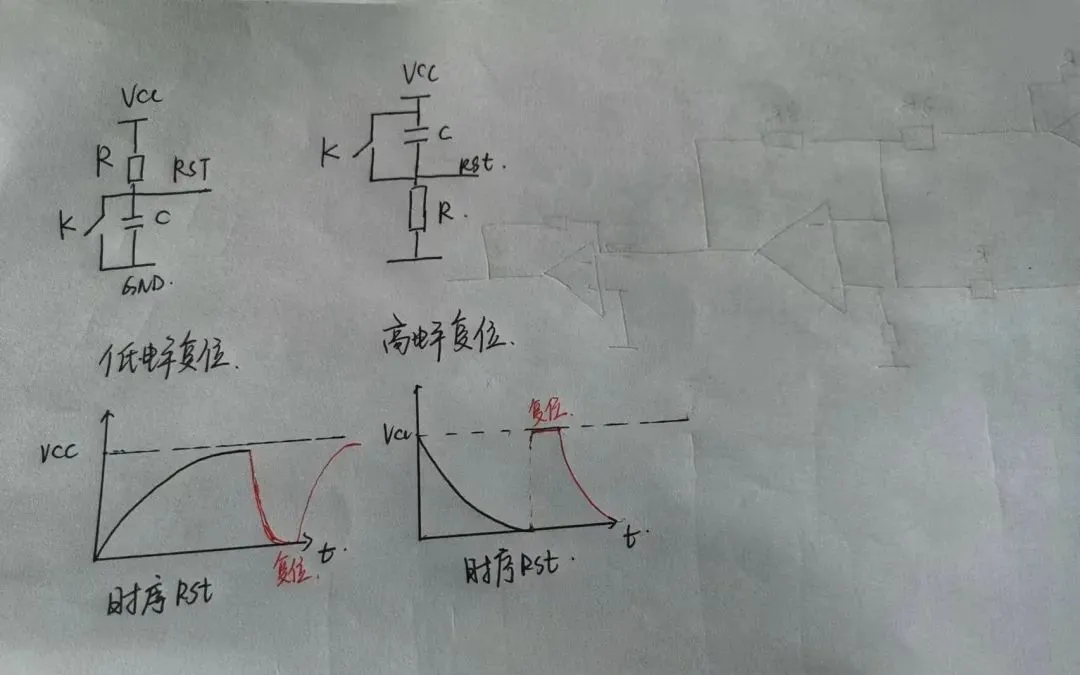 VCC
R
RST
K
C
GND.
低电平复位.
VCC
K
C
RSt.
R.
高电平复位.
VCC
复位.
t.
时序RSt
VCC
复位.
t.
时序RSt.